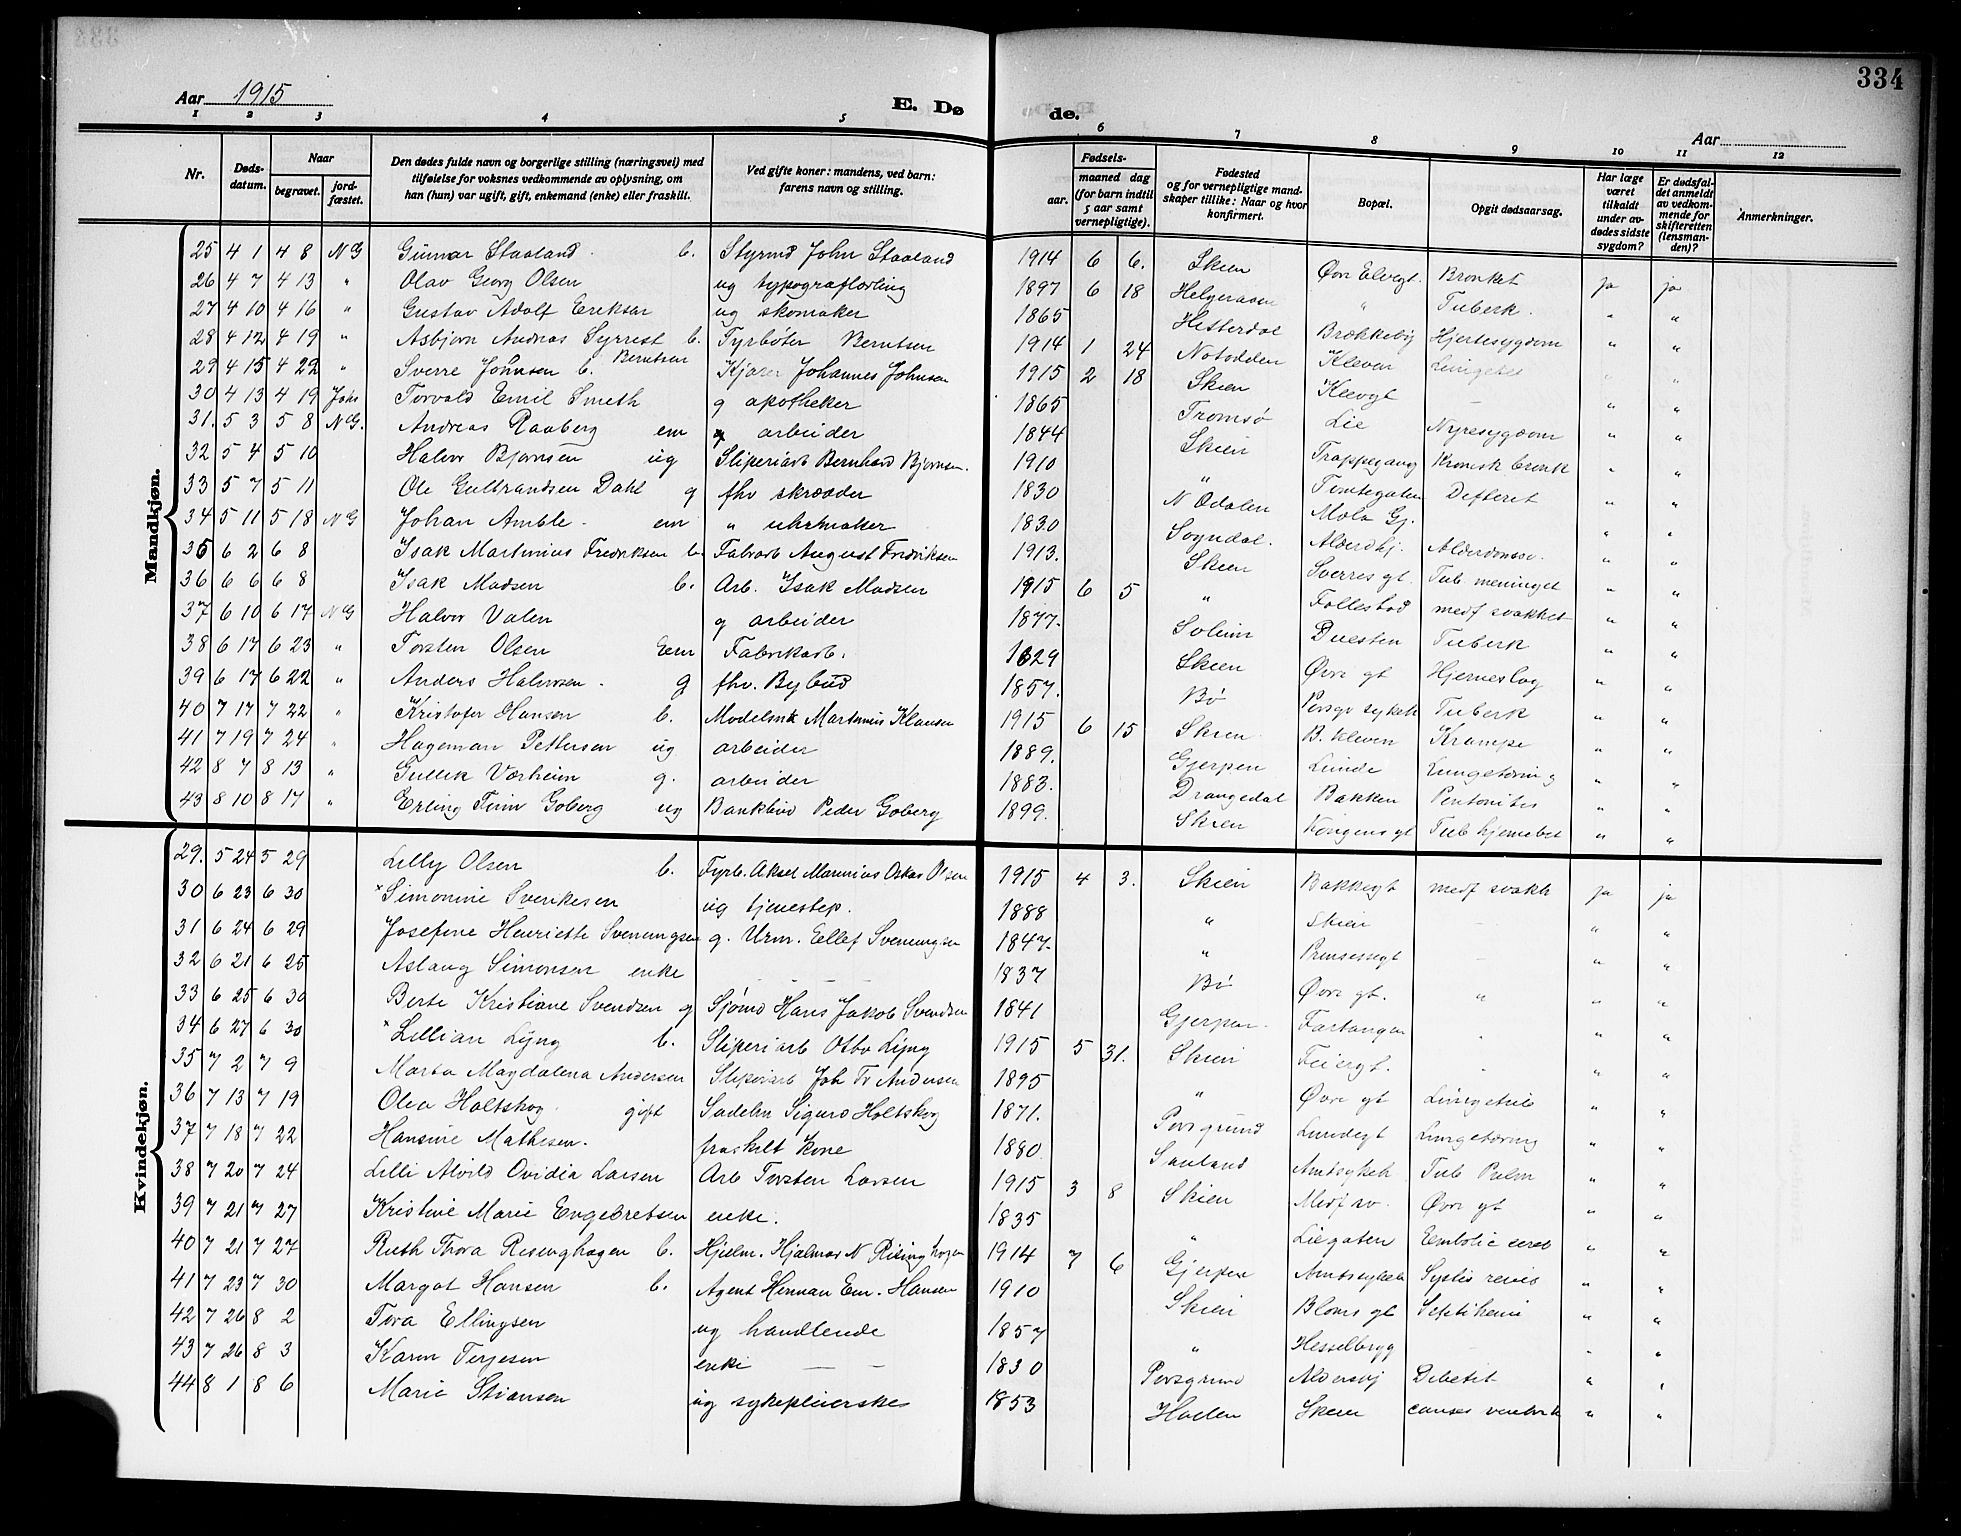 334
Aar 1915
E. Dø
de.
Aar
1 2 3 4 5 6 7 8 9 10 11 12
Nr. Døds-datum. Naar begravet. jord-fæstet. Den dødes fulde navn og borgerlige stilling (næringsvei) med tilføielse for voksnes vedkommende av oplysning, om han (hun) var ugift, gift, enkemand (enke) eller fraskilt. Ved gifte koner: mandens, ved barn: farens navn og stilling. Fødsels- aar. maaned dag (for barn indtil 5 aar samt vernepligtige). Fødested og for vernepligtige mand-skaper tillike: Naar og hvor konfirmert. Bopæl. Opgit dødsaarsag. Har læge været tilkaldt under av-dødes sidste sygdom? Er dødsfal-det anmeldt av vedkom-mende for skifteretten (lensman-den)? Anmerkninger.
Mandkjøn.
25 4 1 4 8 N G Gunnar Staaland b. Styrmd John Staaland 1914 6 6. Skien Øvr Elvegt. Bronkit ja ja
26 4 7 4 13 " Olav Georg Olsen ug typograflærling 1897 6 18 Helgeraaen " Tuberk. " "
27 4 10 4 16 " Gustav Adolf Eriksen ug skomaker 1865 Hitterdal Brækkeby Hjertesygdom " "
28 4 12 4 19 " Asbjørn Andreas Syrrist Berntsen b. Fyrbøter Berntsen 1914 1 24 Notodden Kleven " "
29 4 15 4 22 " Sverre Johnsen b. Kjører Johannes Johnsen 1915 2 18 Skien Klevgt — " "
30 4 13 4 19 Joh. Torvald Emil Smith g apotheker 1865 Tromsø Lie Nyresygdom " "
31. 5 3 5 8 N G. Andreas Raaberg em arbeider 1844 Skien Trappegang Kronisk bronk " "
32 5 4 5 10 Halvor Bjørnsen ug Sliperiarb Bernhard Bjørnsen. 1910 " Defterit " "
33 5 7 5 11 Ole Gulbrandsen Dahl g fhv skrædder 1830 N Odalen Mola Gj. " "
34 5 11 5 18 N G Johan Amble. em " uhrmaker 1830 Sogndal. Alderdhj. " "
35 6 2 6 8 Isak Martinius Fredriksen b. Fabrarb August Fredriksen 1913. Skien Sverres gt. Tub. meninget " "
36 6 6 6 8 Isak Madsen b. Arb. Isak Madsen 1915 6 5 " Follestad medf svakhet " "
37 6 10 6 17 N G Halvor Valen g arbeider 1877. Solum Duesten Tuberk " "
38 6 17 6 23 " Torsten Olsen Em Fabrikarb. 1829 Skien Øvre gt Hjerneslag " "
39 6 17 6 22 " Anders Halvorsen. g fhv. Bybud 1857. Bø Porsgr sykeh Tuberk " "
40 7 17 7 22 " Kristofer Hansen b. Modelsnk Martinius Klausen 1915 6 15 Skien B. Kleven Krampe " "
41 7 19 7 24 " Hageman Pettersen ug arbeider 1889. Gjerpen Lunde Lungetæring " "
42 8 7 8 13 " Gullik Værheim g. arbeider 1883. Drangedal Bakken Peritonites " "
43 8 10 8 17 " Erling Finn Goberg ug Bankbud Peder Goberg 1899. Skien Kongens gt Tub hjernebet " "
Kvindekjøn.
29. 5 24 5 29 Lilly Olsen b. Fyrb. Aksel Marinius Oskar Olsen 1915 4 3. Skien Bakkegt medf svakh ja ja
30 6 23 6 30 × Simonine Sverikesen ug tjenestep. 1888 " Skien — " "
31 6 24 6 29 Josefine Henriette Sveningsen g. Urm. Ellef Sveningsen 1847. " Prinsessegt — " "
32 6 21 6 25 Aslaug Simonsen enke — — 1837 Bø Øvre gt. " " "
33 6 25 6 30 Berte Kristiane Svendsen g Sjømd Hans Jakob Svendsen 1841 Gjerpen. Fartangen " " "
34 6 27 6 30 × Lillian Lyng b. Sliperiarb Otto Lyng 1915 5 31. Skien Feiergt. " " "
35 7 2 7 9 Marta Magdalena Andersen Sliperiarb Joh Fr Andersen 1895 " Øvre gt " "
36 7 13 7 19 Olea Holtskog. gift Sadelm Sigurd Holtskog 1871. Porsgrund Lundegt Lungetæring " "
37 7 18 7 22 Hansine Mathisen. fraskilt kone 1880 Sauland Amtsykeh Tub Pulm " "
38 7 20 7 24 Lilli Alvild Ovidia Larsen Arb Torsten Larsen 1915 3 8 Skien Medf sv. Øvre gt " "
39 7 21 7 27 Kristine Marie Engebretsen enke. 1835 " Liegaten Embolie cereb " "
40 7 21 7 27 Ruth Thora Risinghagen b. Hjelm. Hjalmar N Risinghagen 1914 7 6 Gjerpen Amtssykeh " "
41 7 23 7 30 Margot Hansen b. Agent Herman Em. Hansen 1910 Skien Bloms gt Septikemi " "
42 7 26 8 2 Tora Ellingsen ug handlende 1857 " Hesselbryg — " "
43 7 26 8 3 Karen Terjesen enke — — 1830 Porsgrund Aldershj " "
44 8 1 8 6 Marie Stiansen ug sykepleierske 1853 Skien cancer ventrik " "